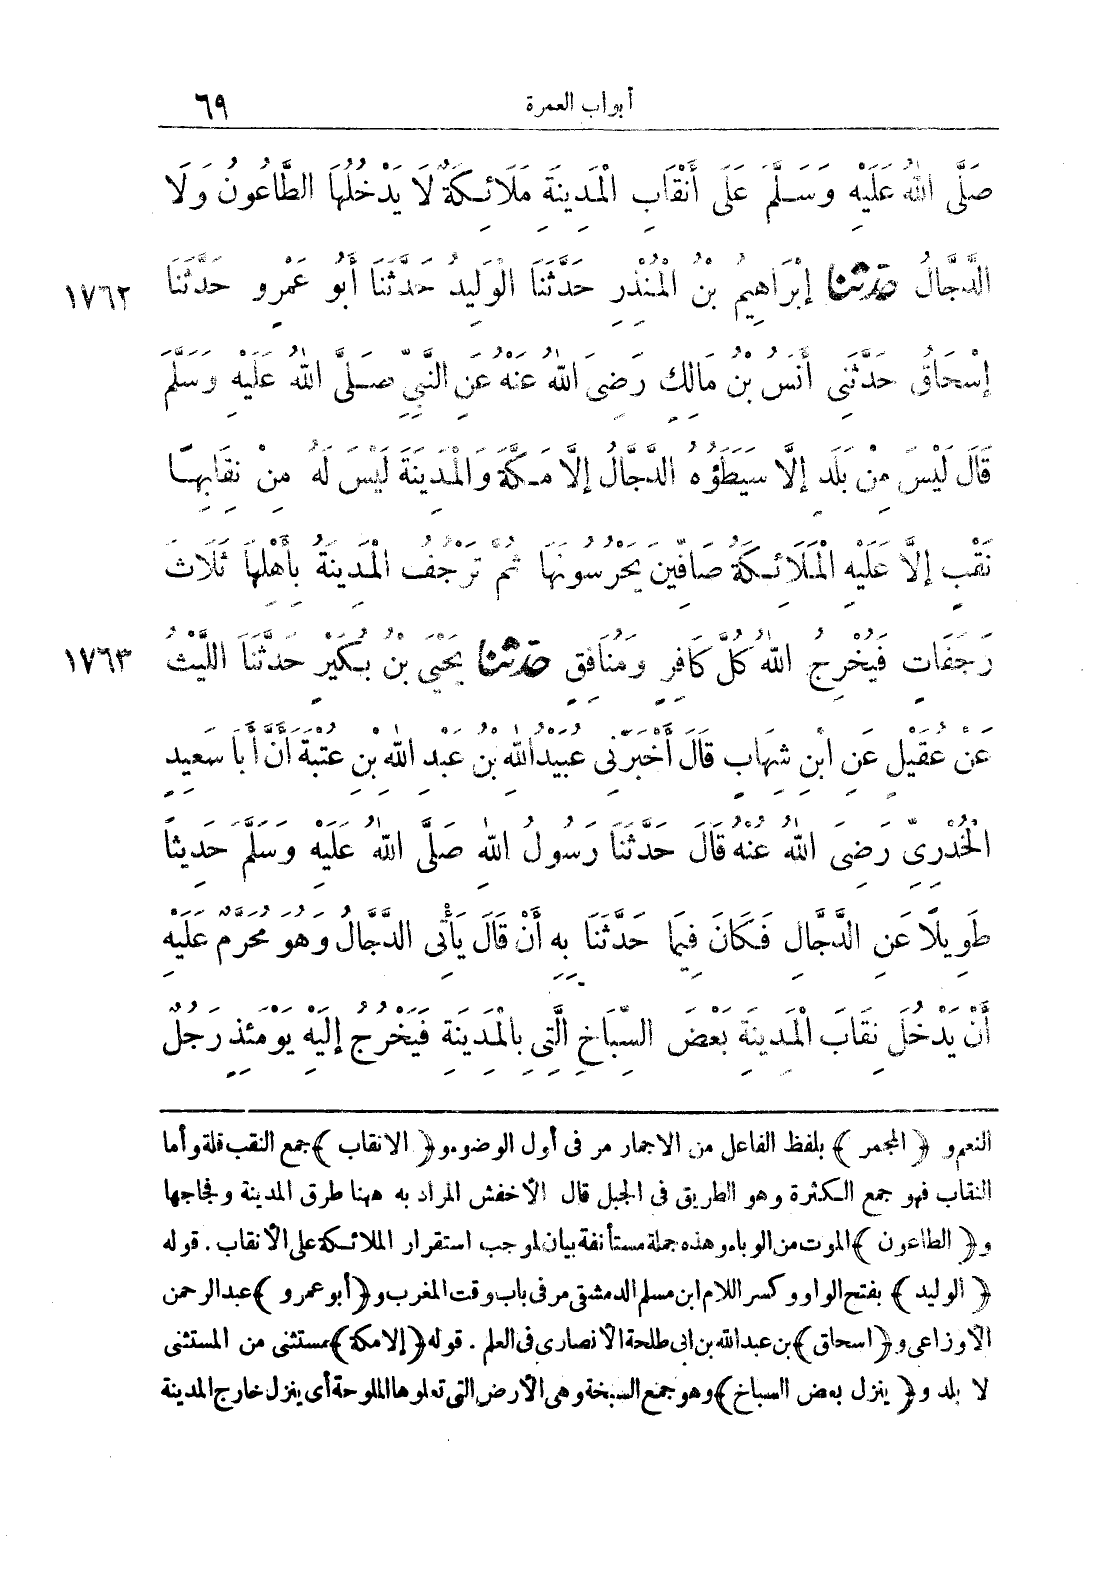 أبواب العمرة ٦٩
صَلَّى اللهُ عَلَيْهِ وَسَلَّمَ عَلَى أَنْقَابِ الْمَدِينَةِ مَلَائِكَةٌ لَا يَدْخُلُهَا الطَّاعُونُ وَلَا
الدَّجَّالُ حَدَّثَنَا إِبْرَاهِيمُ بْنُ الْمُنْذِرِ حَدَّثَنَا الْوَلِيدُ حَدَّثَنَا أَبُو عَمْرٍو حَدَّثَنَا ١٧٦٢
إِسْحَاقُ حَدَّثَنِي أَنَسُ بْنُ مَالِكٍ رَضِىَ اللهُ عَنْهُ عَنِ النَّبِيِّ صَلَّى اللهُ عَلَيْهِ وَسَلَّمَ
قَالَ لَيْسَ مِنْ بَلَدٍ إِلَّا سَيَطَؤُهُ الدَّجَّالُ إِلَّا مَكَّةَ وَالْمَدِينَةَ لَيْسَ لَهُ مِنْ نِقَابِهَا
نَقْبٌ إِلَّا عَلَيْهِ الْمَلَائِكَةُ صَافِّينَ يَحْرُسُونَهَا ثُمَّ تَرْجُفُ الْمَدِينَةُ بِأَهْلِهَا ثَلَاثَ
رَجَفَاتٍ فَيُخْرِجُ اللهُ كُلَّ كَافِرٍ وَمُنَافِقٍ حَدَّثَنَا يَحْيَى بْنُ بُكَيْرٍ حَدَّثَنَا اللَّيْثُ ١٧٦٣
عَنْ عُقَيْلٍ عَنِ ابْنِ شِهَابٍ قَالَ أَخْبَرَنِى عُبَيْدُ اللهِ بْنُ عَبْدِ اللهِ بْنِ عُتْبَةَ أَنَّ أَبَا سَعِيدٍ
الْخُدْرِىَّ رَضِىَ اللهُ عَنْهُ قَالَ حَدَّثَنَا رَسُولُ اللهِ صَلَّى اللهُ عَلَيْهِ وَسَلَّمَ حَدِيثًا
طَوِيلًا عَنِ الدَّجَّالِ فَكَانَ فِيمَا حَدَّثَنَا بِهِ أَنْ قَالَ يَأْتِى الدَّجَّالُ وَهُوَ مُحَرَّمٌ عَلَيْهِ
أَنْ يَدْخُلَ نِقَابَ الْمَدِينَةِ بَعْضَ السِّبَاخِ الَّتِى بِالْمَدِينَةِ فَيَخْرُجُ إِلَيْهِ يَوْمَئِذٍ رَجُلٌ
النعم و ﴿ المجمر ﴾ بلفظ الفاعل من الاجمار مر فى أول الوضوء و ﴿ الانقاب ﴾ جمع النقب قلة وأما
النقاب فهو جمع الكثرة وهو الطريق فى الجبل قال الأخفش المراد به ههنا طرق المدينة وفجاجها
و ﴿ الطاعون ﴾ الموت من الوباء وهذه جملة مستأنفة بيان لموجب استقرار الملائكة على الأنقاب . قوله
﴿ الوليد ﴾ بفتح الواو وكسر اللام ابن مسلم الدمشقى مر فى باب وقت المغرب و ﴿ أبو عمرو ﴾ عبد الرحمن
الأوزاعى و ﴿ اسحاق ﴾ بن عبد الله بن ابى طلحة الأنصارى فى العلم . قوله ﴿ إلا مكة ﴾ مستثنى من المستثنى
لا بلد و ﴿ ينزل بعض السباخ ﴾ وهو جمع السبخة وهى الأرض التى تعلوها الملوحة أى ينزل خارج المدينة